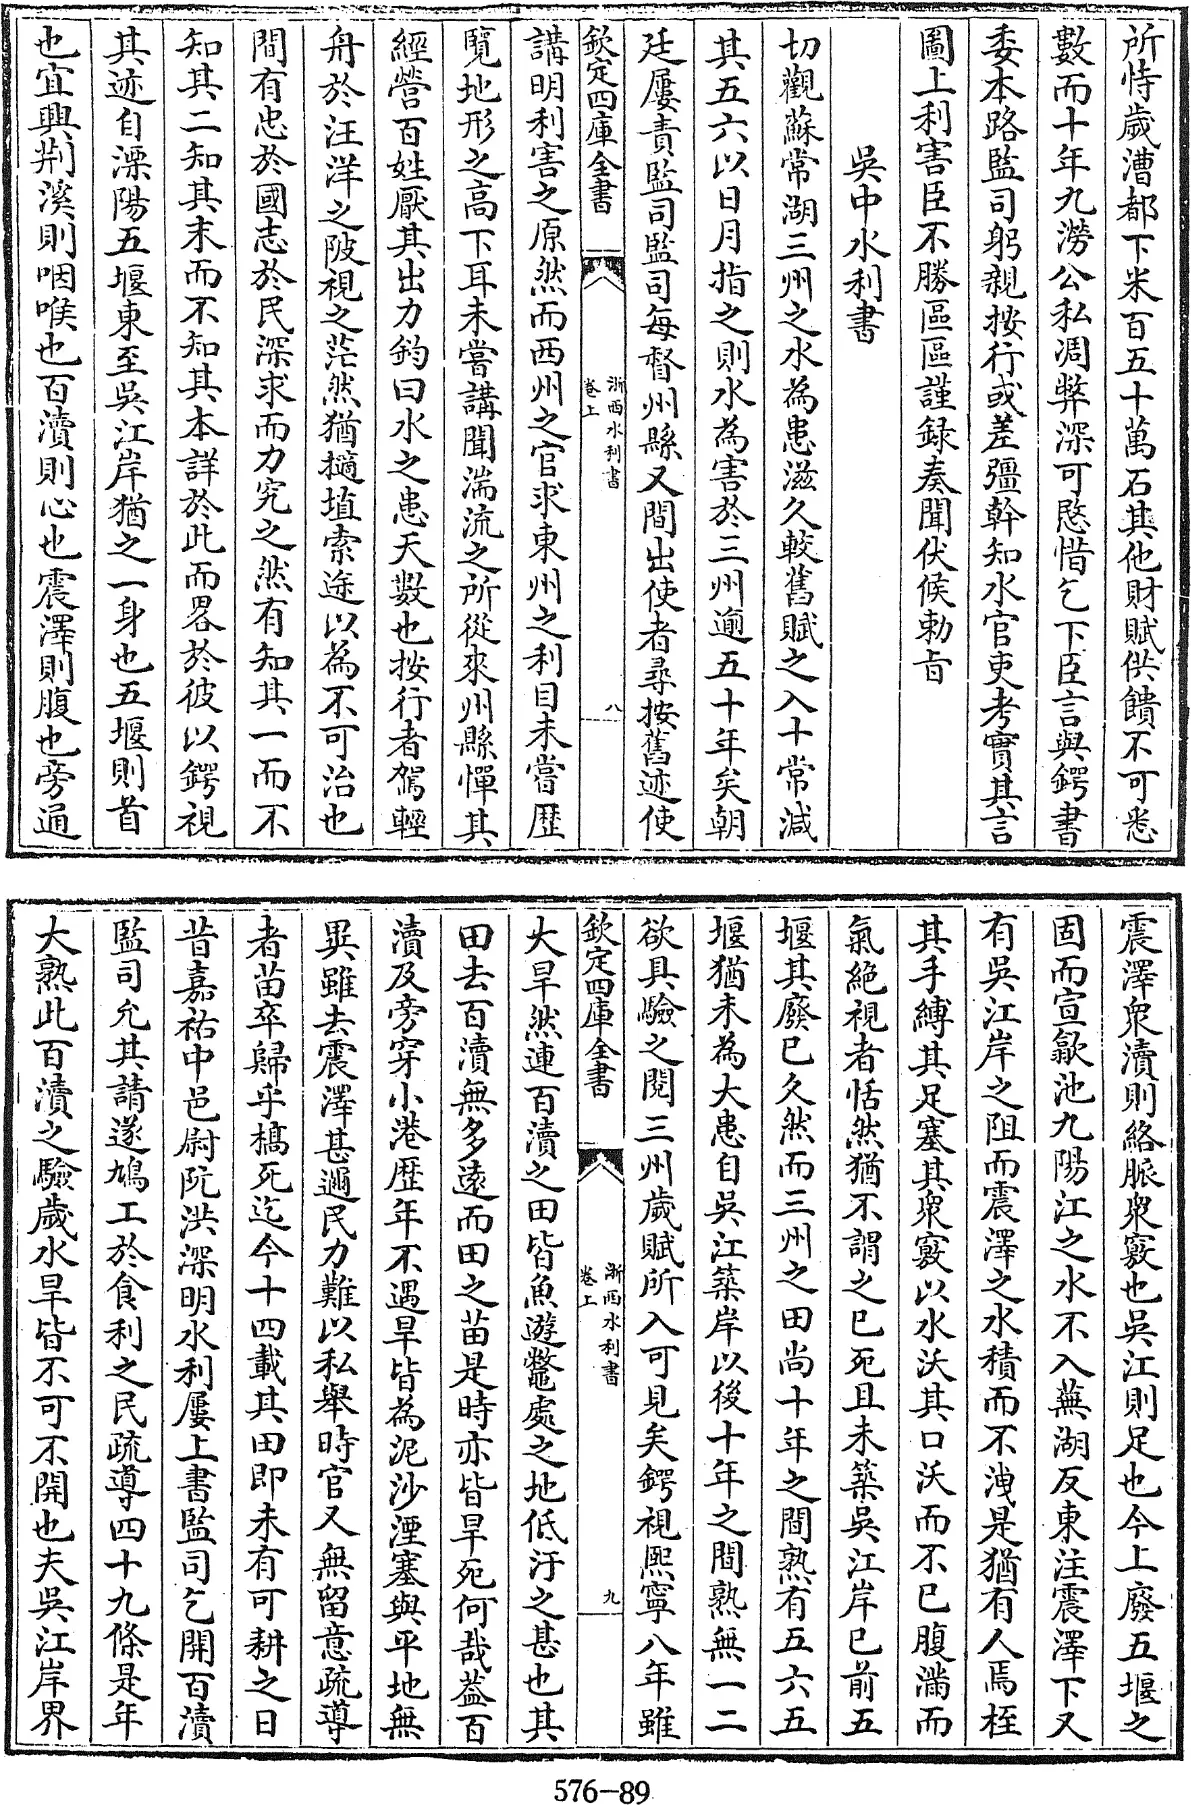 所恃歲漕都下米百五十萬石其他財賦供饋不可悉
數而十年九澇公私凋弊深可愍惜乞下臣言與鍔書
委本路監司躬親按行或差彊幹知水官吏考實其言
圖上利害臣不勝區區謹録奏聞伏候勅旨
吳中水利書
切觀蘇常湖三州之水為患滋久較舊賦之入十常減
其五六以日月指之則水為害於三州逾五十年矣朝
廷屢責監司監司每督州縣又間出使者尋按舊迹使
欽定四庫全書
浙西水利書
卷上
八
講明利害之原然而西州之官求東州之利目未嘗歷
覽地形之高下耳未嘗講聞湍流之所從來州縣憚其
經營百姓厭其出力鈞曰水之患天數也按行者駕輕
舟於汪洋之陂視之茫然猶擿埴索途以為不可治也
間有忠於國志於民深求而力究之然有知其一而不
知其二知其末而不知其本詳於此而畧於彼以鍔視
其迹自溧陽五堰東至吳江岸猶之一身也五堰則首
也宜興荆溪則咽喉也百瀆則心也震澤則腹也旁通
震澤衆瀆則絡脈衆竅也吳江則足也今上廢五堰之
固而宣歙池九陽江之水不入蕪湖反東注震澤下又
有吳江岸之阻而震澤之水積而不洩是猶有人焉桎
其手縛其足塞其衆竅以水沃其口沃而不已腹滿而
氣絶視者恬然猶不謂之已死且未築吳江岸已前五
堰其廢已久然而三州之田尚十年之間熟有五六五
堰猶未為大患自吳江築岸以後十年之間熟無一二
欲具驗之閱三州歲賦所入可見矣鍔視熙寧八年雖
欽定四庫全書
浙西水利書
卷上
九
大旱然連百瀆之田皆魚遊鼈處之地低汙之甚也其
田去百瀆無多遠而田之苗是時亦皆旱死何哉葢百
瀆及旁穿小港歷年不遇旱皆為泥沙湮塞與平地無
異雖去震澤甚邇民力難以私舉時官又無留意疏導
者苗卒歸乎槁死迄今十四載其田即未有可耕之日
昔嘉祐中邑尉阮洪深明水利屢上書監司乞開百瀆
監司允其請遂鳩工於食利之民疏導四十九條是年
大熟此百瀆之驗歲水旱皆不可不開也夫吳江岸界
576-89